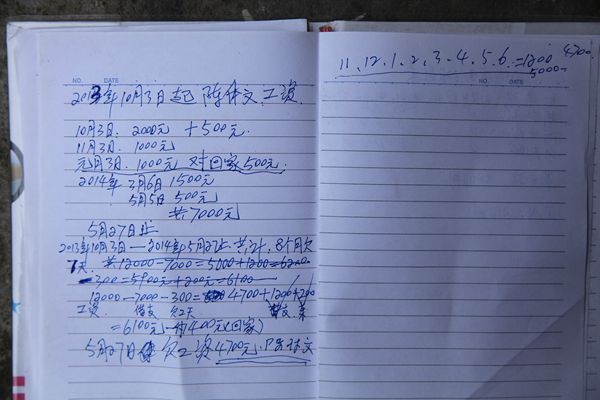 NO. DATE
2013年10月3日起 陈伟文工资
10月3日: 2000元 +500元
11月3日. 1000元
元月3日. 1000元 对回家500元.
2014年 3月6日 1500元
5月5日 500元
共7000元
5月27日止
2013年10月3日—2014年5月27止 共计: 8个月欠
7天. 共12000-7000=5000+1200=6200
-300=5900元+200元=6100
12000-7000-300= 4700+1200+200
工资 借支
=6100元 1400元(回家)
5月27日 欠工资4700元
11、12、1、2、3、4、5、6、=1200 4700
5000
NO. DATE